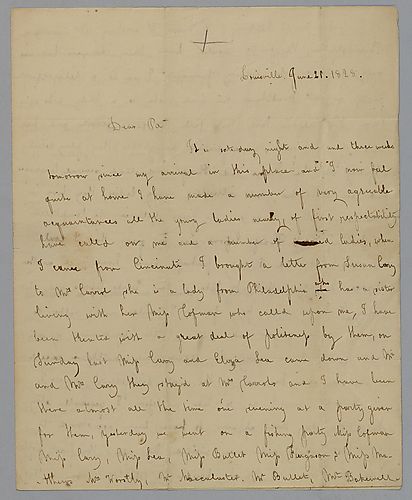 Louisville. June 21. 1828.
Dear Pa
It is saturday night and and three weeks
tomorrow since my arrival in this place and I now feel
quite at home I have made a number of very agreeable
acquaintances all the young ladies nearly, of first respectability
have called on me and a number of ladies, when
I came from Cincinnati I brought a letter from Susan Cary
to Mrs Carrol she is a lady from Philadelphia has a sister
living with her Miss Cofman who called upon me, I have
been treated with a great deal of politeness by them, on
Sunday last Miss Cary and Eliza Lea came down and Mr
and Mrs Cary they stay'd at Mrs Carrols and I have been
there almost all the time one evening at a party given
for them, yesterday we went on a fishing party Miss Cofman
Miss Cary, Miss Lea, Miss Bullet Miss Ferguson & Miss Ma-
Mr Bullet, Mr Bakewell